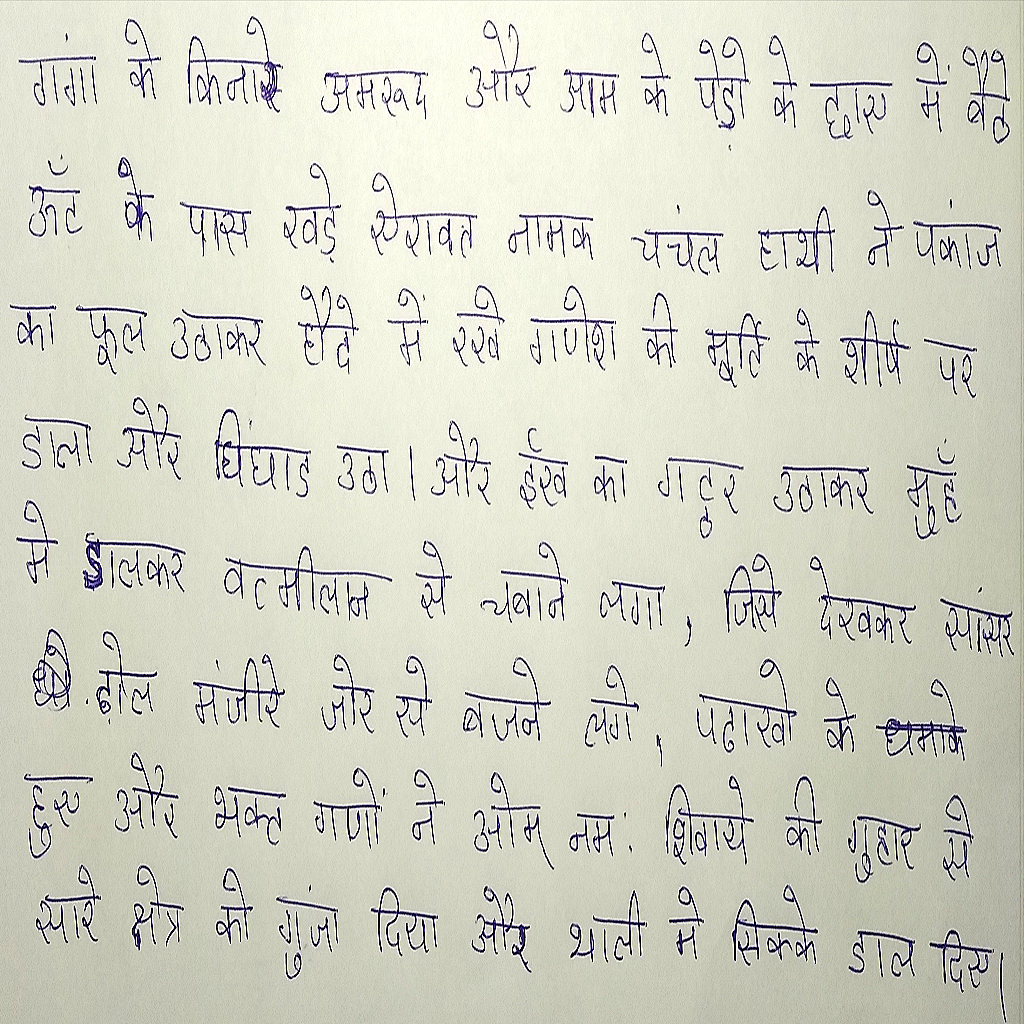 गंगा के किनारे अमरूद और आम के पेड़ो के छाए में बैठे
ऊँट के पास खड़े ऐरावत नामक चंचल हाथी ने पंकाज
का फूल उठाकर हौदे में रखे गणेश की मूर्ति के शीर्ष पर
डाला और चिंघाड उठा। और ईख का गट्ठर उठाकर मुहँ
मे डालकर से चबाने लगा, जिसे देखकर सांसर
ढोल मंजीरे जोर से बजने लगे, पटाखो के धमाके
हुए और भक्त गणों ने ओम् नम: शिवाये की गुहार से
सारे क्षेत्र को गुंजा दिया और थाली मे सिक्के डाल दिए।